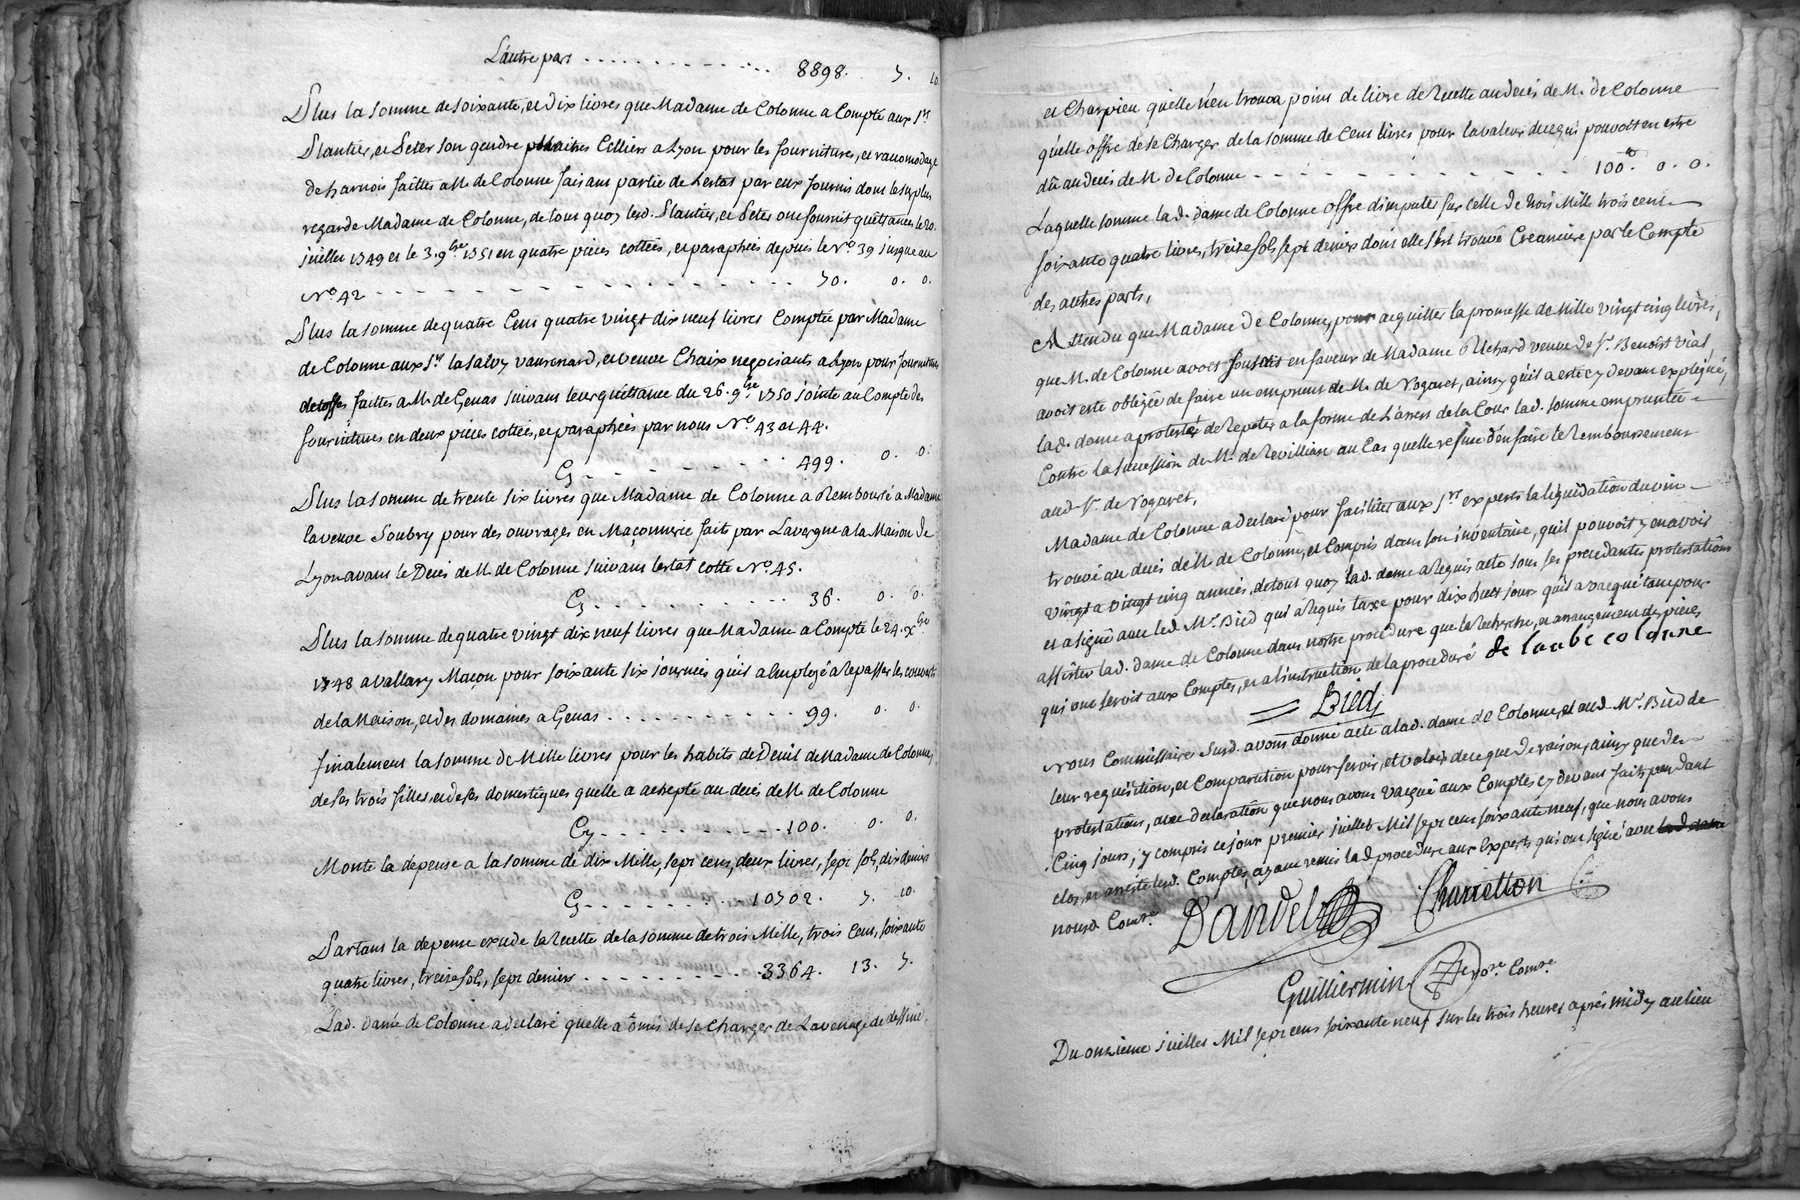 L'autre part . . . . . . . . . . . . 8898. 7. 10.
Plus la somme de soixante, et dix livres que Madame de Colonne a Compté aux Srs
Plantier, et Peter son gendre maitres Celliers a Lyon pour les fournitures, et racomodage
de harnois faittes a M. de Colonne faisant partie de L'estat par eux fourni dont le surplus
regarde Madame de Colonne, de tout quoy lesd. Plantier, et Peter ont fournit quittances le 20.
juillet 1749 et le 3. 9bre 1751 en quatre pieces cottées, et paraphées depuis le No. 39 jusque au
No 42 - - - - - - - - - - - - - - - 70. 0. 0.
Plus la somme de quatre Cens quatre vingt dix neuf livres Comptée par Madame
de Colonne aux Srs la salvy vaurenard, et veuve Chaix negociants a Lyon pour fournitures
detoffes faittes a M. de Genas suivant leur quittance du 26. 9bre 1750 jointe au Compte des
fournitures en deux pieces cottées, et paraphées par nous No 43 et 44.
Cy - - - - - - - - 499. 0. 0.
Plus la somme de trente six livres que Madame de Colonne a Remboursé a Madame
la veuve Soubry pour des ouvrages en Maçonnerie faits par Lavergne a la Maison de
Lyon avant le Deces de M. de Colonne suivant l'estat cotté No. 45.
Cy . . . . . . . . . 36. 0. 0.
Plus la somme de quatre vingt dix neuf livres que Madame a Compté le 24. Xbre
1748 a Vallary Maçon pour soixante six journées qu'il a Employé a Repasser les couverts
de la Maison, et des domaines a Genas . . . . . . . . . 99. 0. 0.
finalement la somme de Mille livres pour les habits de Deuil de Madame de Colonne,
de ses trois filles, et de ses domestiques quelle a accepté au deces de M. de Colonne
Cy - - - - - - - - - 100. 0. 0.
Monte la depense a la somme de dix Mille, sept cens, deux livres, sept sols, dix deniers
Cy - - - - - - - - 10702. 7. 10.
Partant la depense exede la Recette de la somme de trois Mille, trois Cens, soixante
quatre livres, treize sols, sept deniers - - - - - - - - - 3364. 13. 7.
Lad. dame de Colonne a declaré quelle a omis de se Charger de
et Charpieu qu'elle n'en trouva point de livre de Recette au deces de M. de Colonne
qu'elle offre de se Charger de la somme de Cent livres pour la valeur de ce qui pouvoit en estre
dû au deces de M. de Colonne - - - - - - - - - - - - 100.tt 0. 0.
Laquelle somme lad. dame de Colonne offre d'imputer sur celle de trois Mille trois cent
soixante quatre livres, treize sols, sept deniers dont elle s'est trouvé Creanciere par le Compte
des autres parts,
Attendu que Madame de Colonne, pour acquitter la promesse de Mille vingt cinq livres,
que M. de Colonne avoit en faveur de Madame Richard veuve de Sr. Benoist Vial,
avoit esté obligée de faire un emprunt de M. de Nogaret, ainsy qu'il a esté cy devant expliqué,
lad. dame a protesté de Repeter a la forme de L'arrest de la Cour lad. somme empruntée
Contre la succession de M. de Revillian au Cas quelle refuse d'en faire le Remboursement
aud. Sr. de Nogaret,
Madame de Colonne a declaré pour faciliter aux Srs experts la liquidation du vin
trouvé au deces de M. de Colonne, et Compris dans son inventaire, qu'il pouvoit y en avoir
vingt a vingt cinq années, de tout quoy lad. dame a Requis acte sous ses precedantes protestations
et a signé avec led. Me. Bied qui a Requis taxe pour dix huit jours qu'il a vacqué tant pour
assister lad. dame de Colonne dans nostre procedure que la Recherche, et arrangement des pieces
qui ont servit aux Comptes, et a l'instruction de la procedure de laube colonne
Bied
Nous Commissaire Susd. avons donné acte a lad. dame de Colonne, et aud. Me. Bied de
leur requisition, et Comparution pour servir, et valoir de ce que de raison, ainsy que de
protestations, avec declaration que nous avons Vacqué aux Comptes cy devant faits pendant
Cinq jours, y compris ce jour premier juillet Mil sept cens soixante neuf, que nous avons
clos, et arresté lesd. Comptes, ayant remis lad. procedure aux Experts qui ont signé avec
nousd. Comre.
Dandel Charretton
Guilliermin Comre.
Du onzieme juillet Mil sept cens soixante neuf sur les trois heures après midy au lieu